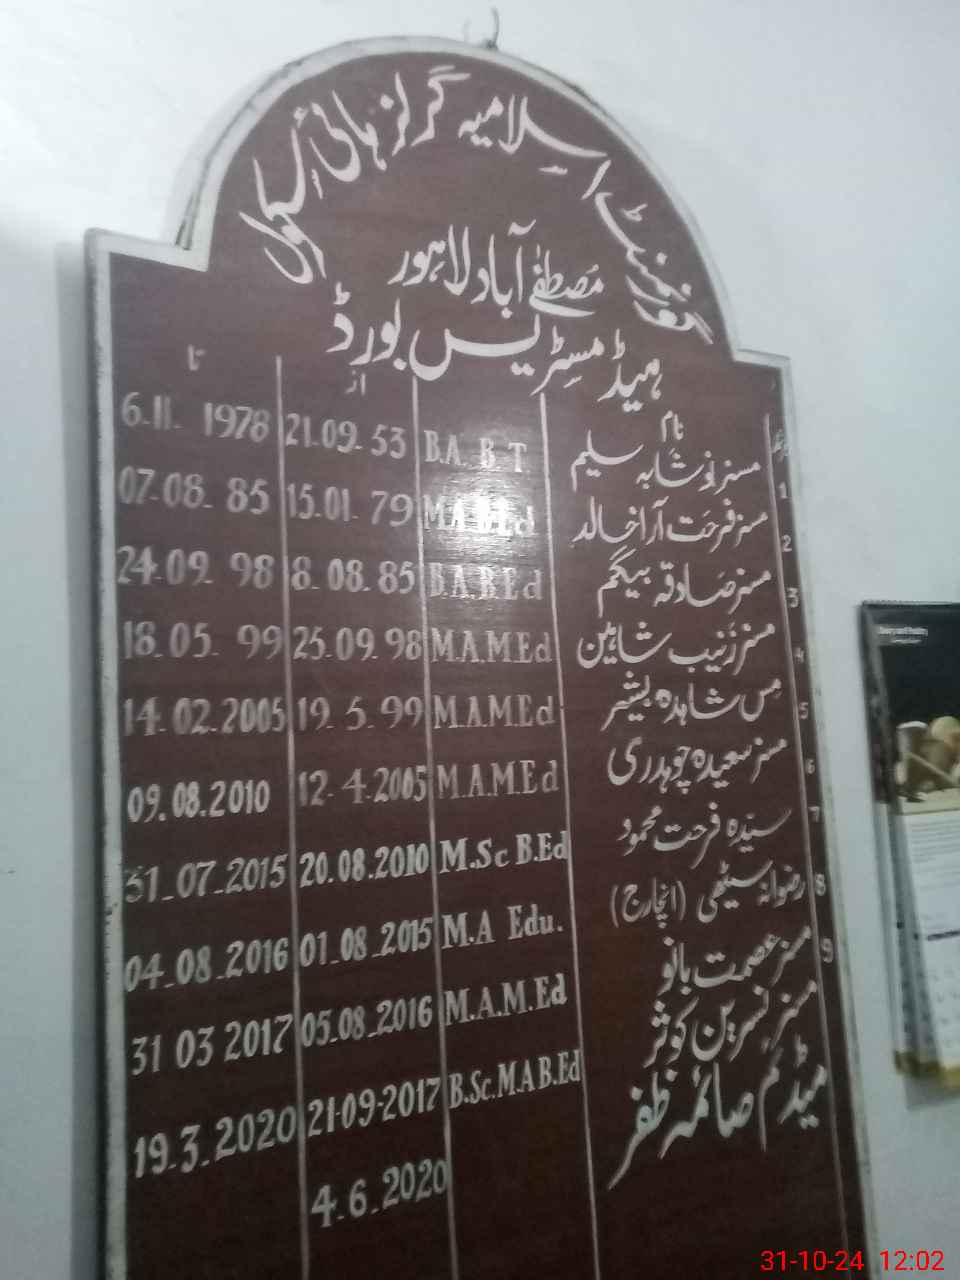 گورنمنٹ اسلامیہ گرلز ہائی سکول
مصطفےٰ آباد لاہور
ہیڈ مسٹریس بورڈ
نام از تا
1 مسز نوشابہ سلیم B.A. B.T 21.09.53 6.11.1978
2 مسز فرحت آرا خالد M.A.B.Ed 15.01.79 07-08-85
3 مسز صادقہ بیگم B.A.B.Ed 8.08.85 24-09-98
4 مسز زینب شاہین M.A.M.Ed 25.09.98 18.05.99
5 مس شاہدہ بشیر M.A.M.Ed 19.5.99 14.02.2005
6 مسز سعیدہ چوہدری M.A.M.Ed 12-4-2005 09.08.2010
7 سیدہ فرحت محمود M.Sc B.Ed 20.08.2010 31-07-2015
8 رضوانہ سیٹھی (انچارج) M.A Edu. 01.08.2015 04-08-2016
9 مسز عصمت بانو M.A.M.Ed 05.08-2016 31 03 2017
مسز نسرین کوثر B.Sc.M.A B.Ed 21-09-2017 19-3-2020
میڈم صائمہ ظفر 4-6-2020
31-10-24 12:02